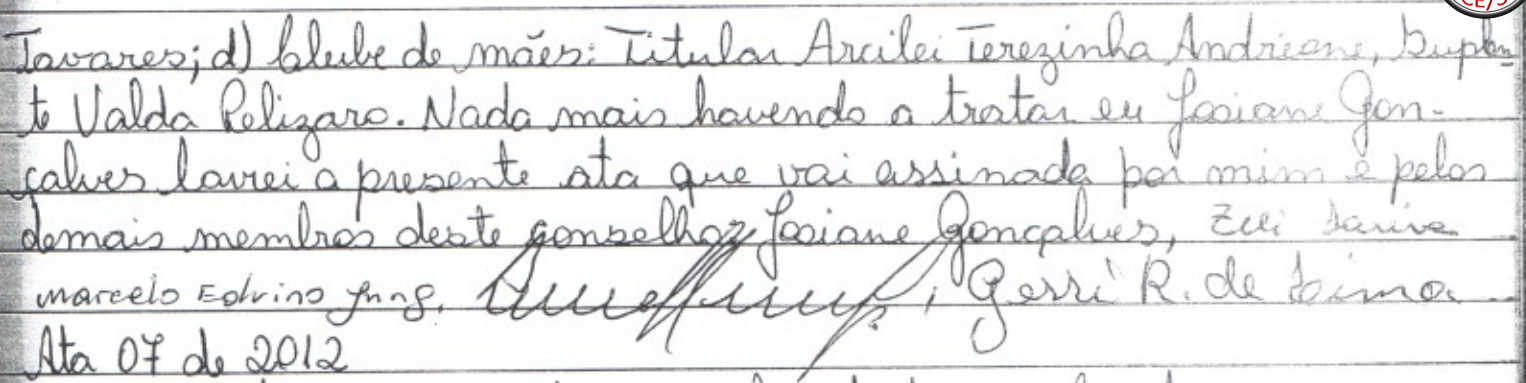 Tavares; d) Clube de mães: Titular Arcilei Terezinha Andreane, Suplen-
te Valda Pelizaro. Nada mais havendo a tratar eu Josiane Gon-
çalves lavrei a presente ata que vai assinada por mim e pelos
demais membros deste conselho, Josiane Gonçalves, Zeli
Marcelo Edvino Jung, Gerri R. de Lima
Ata 07 de 2012
CE/S